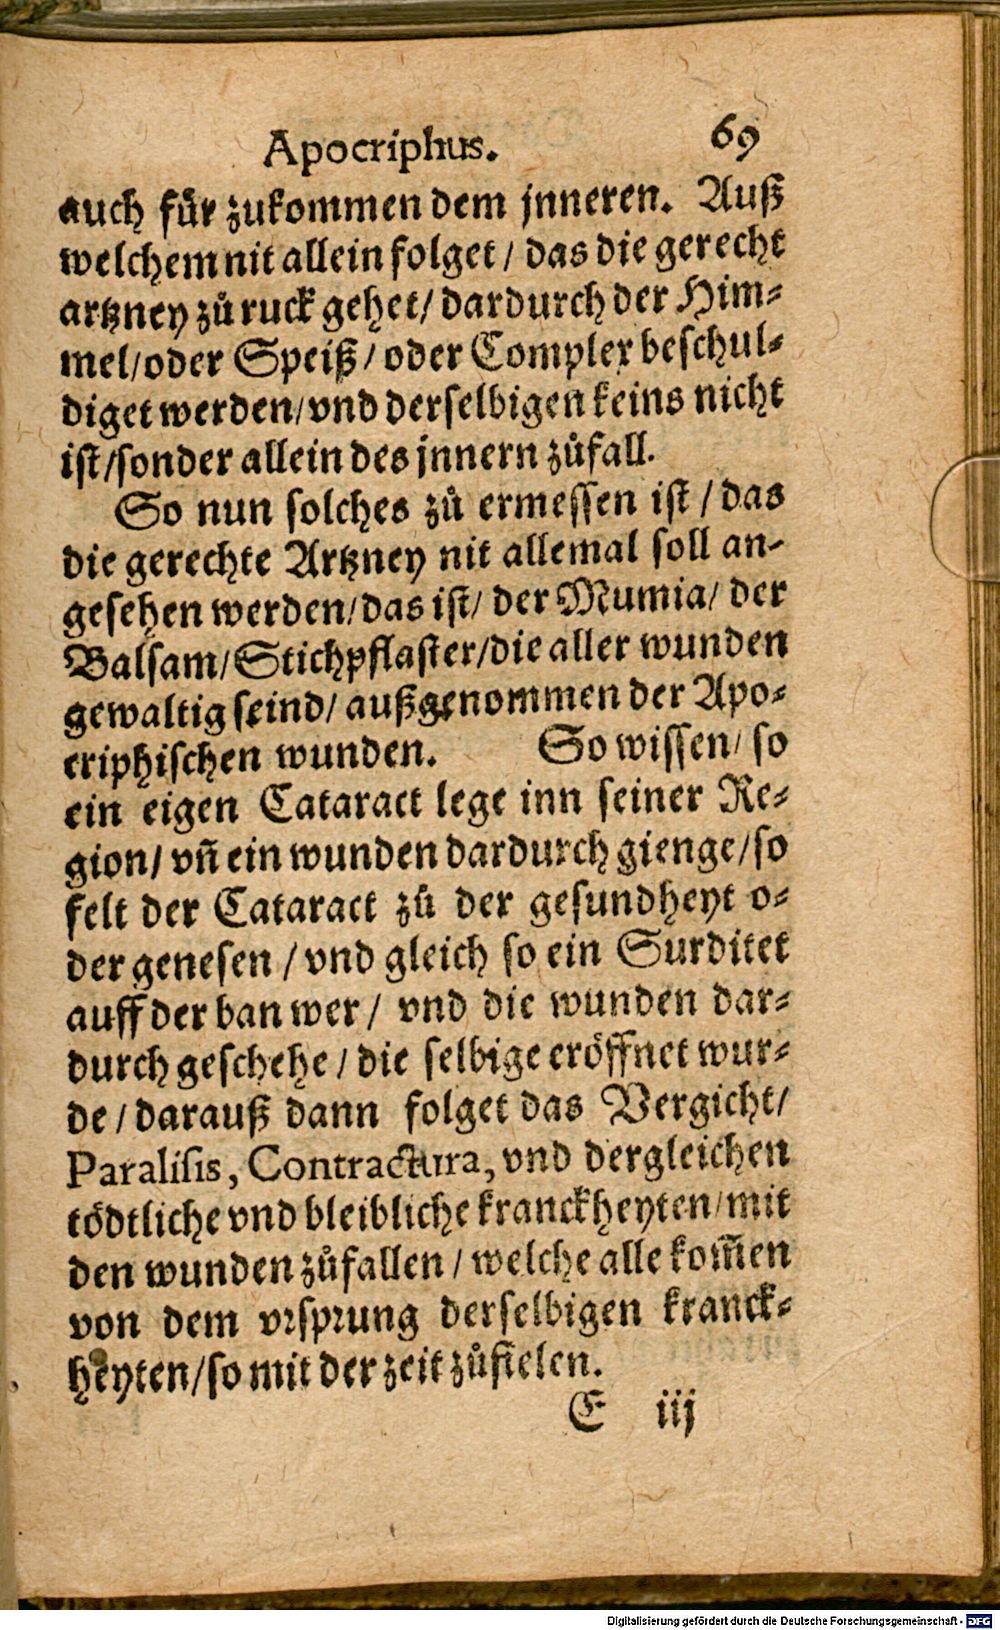 Apocriphus. 69
auch für zukommen dem jnneren. Auß
welchem nit allein folget / das die gerecht
artzney zů ruck gehet / dardurch der Him⸗
mel / oder Speiß / oder Complex beschul⸗
diget werden / vnd derselbigen keins nicht
ist / sonder allein des jnnern zůfall.
So nun solches zů ermessen ist / das
die gerechte Artzney nit allemal soll an⸗
gesehen werden / das ist / der Mumia / der
Balsam / Stichpflaster / die aller wunden
gewaltig seind / außgenommen der Apo⸗
criphischen wunden. So wissen / so
ein eigen Cataract lege inn seiner Re⸗
gion / vñ ein wunden dardurch gienge / so
felt der Cataract zů der gesundheyt o⸗
der genesen / vnd gleich so ein Surditet
auff der ban wer / vnd die wunden dar⸗
durch geschehe / die selbige eröffnet wur⸗
de / darauß dann folget das Vergicht /
Paralisis, Contractura, vnd dergleichen
tödtliche vnd bleibliche kranckheyten / mit
den wunden zůfallen / welche alle kom̃en
von dem vrsprung derselbigen kranck⸗
heyten / so mit der zeit zůfielen.
E iij
Digitalisierung gefördert durch die Deutsche Forschungsgemeinschaft - DFG